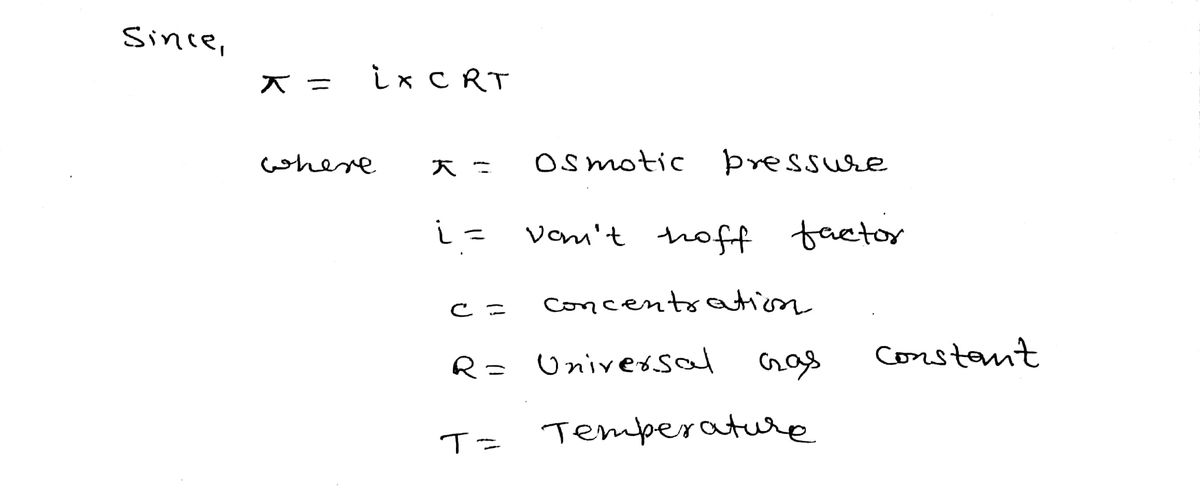 Since,
π = i × C RT
where π = osmotic pressure
i = van't hoff factor
C = concentration
R = Universal Gas constant
T = Temperature